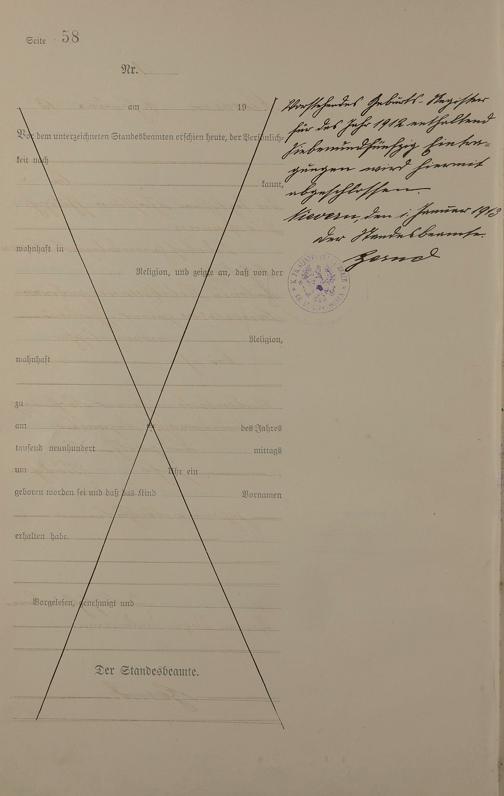 Seite 58
Nr.
am 19
Vor dem unterzeichneten Standesbeamten erschien heute, der Persönlich-
keit nach
kannt,
wohnhaft in
Religion, und zeigte an, daß von der
Religion,
wohnhaft
zu
am des Jahres
tausend neunhundert mittags
um Uhr ein
geboren worden sei und daß das Kind Vornamen
erhalten habe.
Vorgelesen, genehmigt und
Der Standesbeamte.
Vorstehendes Geburts-Register
für das Jahr 1912 enthaltend
siebenundfünfzig Eintra-
gungen wird hiermit
abgeschlossen.
Nievern, den 1. Januar 1913
Der Standesbeamte.